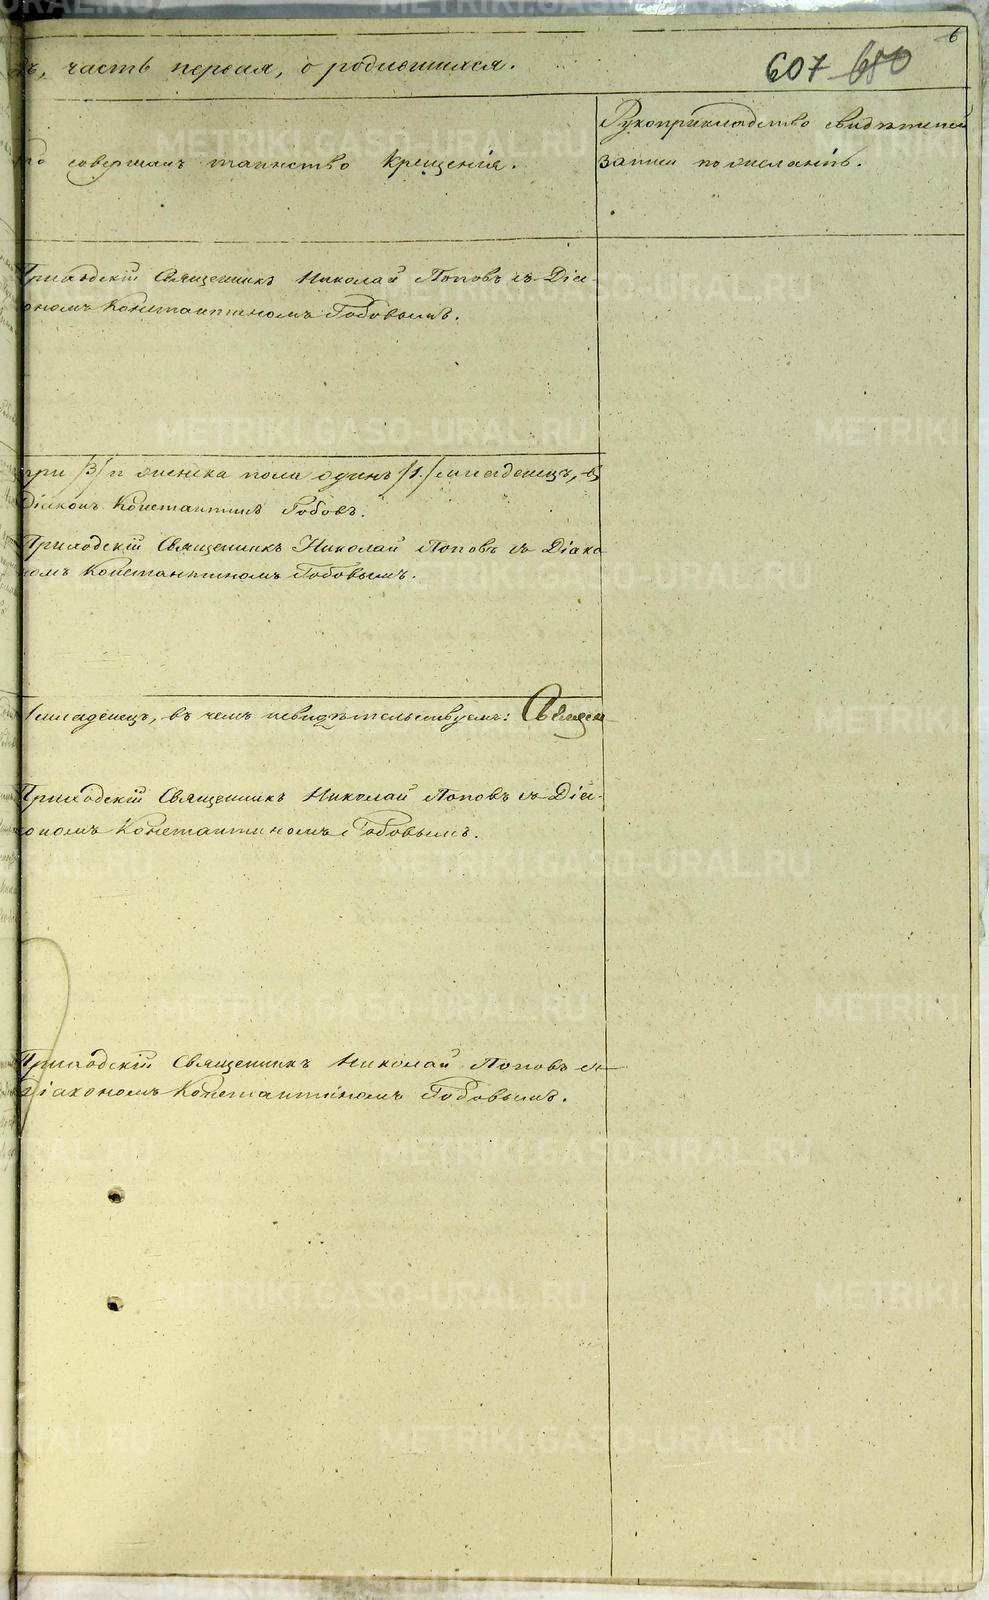 6
ъ, часть первая, о родившихся.
607 680
совершалъ таинство Крещенія.
Рукоприкладство свидѣтелей
записи по желанію.
Приходскій Священникъ Николай Поповъ съ Діа-
кономъ Константиномъ Гобовымъ.
три /3/ и женска пола одинъ /1./ младенецъ, въ
Діаконъ Константинъ Гобовъ.
Приходскій Священникъ Николай Поповъ съ Діако
номъ Константиномъ Гобовымъ.
младенецъ, въ чемъ и свидѣтельствуемъ: Священ
Приходскій Священникъ Николай Поповъ съ Діа-
кономъ Константиномъ Гобовымъ.
Приходскій Священникъ Николай Поповъ съ
Діакономъ Константиномъ Гобовымъ.
METRIKI.GASO-URAL.RU